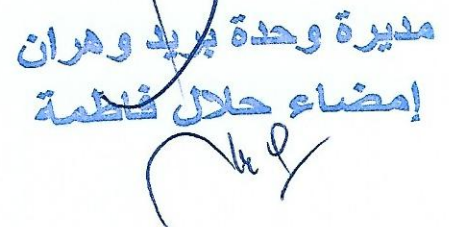 مديرة وحدة بريد وهران
إمضاء حلال فاطمة